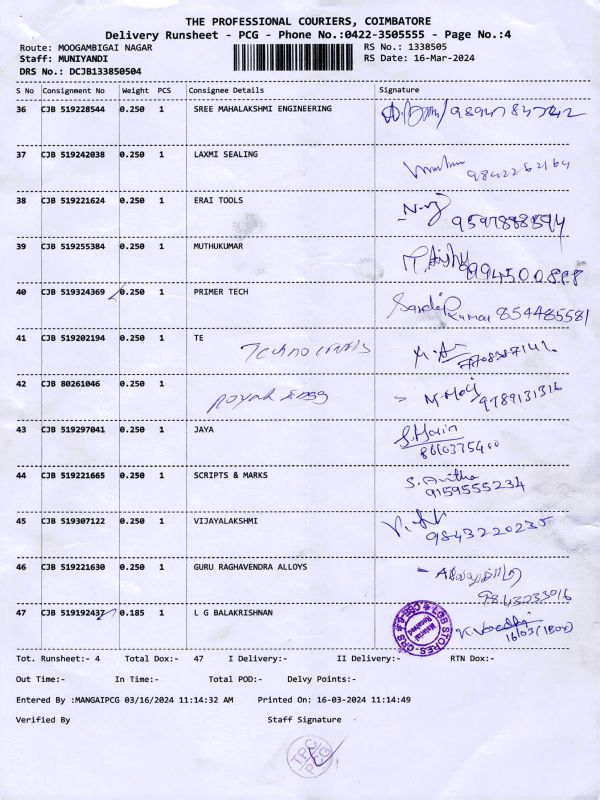 THE PROFESSIONAL COURIERS, COIMBATORE
Delivery Runsheet - PCG - Phone No.:0422-3505555 - Page No.:4
Route: MOOGAMBIGAI NAGAR RS No.: 1338505
Staff: MUNIYANDI RS Date: 16-Mar-2024
DRS No.: DCJB133850504
S No Consignment No Weight PCS Consignee Details Signature
36 CJB 519228544 0.250 1 SREE MAHALAKSHMI ENGINEERING
37 CJB 519242038 0.250 1 LAXMI SEALING 9842262164
38 CJB 519221624 0.250 1 ERAI TOOLS
39 CJB 519255384 0.250 1 MUTHUKUMAR
40 CJB 519324369 0.250 1 PRIMER TECH Kumar 854485581
41 CJB 519202194 0.250 1 TE
42 CJB 80261046 0.250 1 Royal Engg 9789131316
43 CJB 519297041 0.250 1 JAYA S. Harin
44 CJB 519221665 0.250 1 SCRIPTS & MARKS S. Anitha
9159555234
45 CJB 519307122 0.250 1 VIJAYALAKSHMI
9843220235
46 CJB 519221630 0.250 1 GURU RAGHAVENDRA ALLOYS
9843233016
47 CJB 519192437 0.185 1 L G BALAKRISHNAN
16/03 (1Box)
LGB STORES
Material Received
Tot. Runsheet:- 4 Total Dox:- 47 I Delivery:- II Delivery:- RTN Dox:-
Out Time:- In Time:- Total POD:- Delvy Points:-
Entered By :MANGAIPCG 03/16/2024 11:14:32 AM Printed On: 16-03-2024 11:14:49
Verified By Staff Signature
TPC
PCG